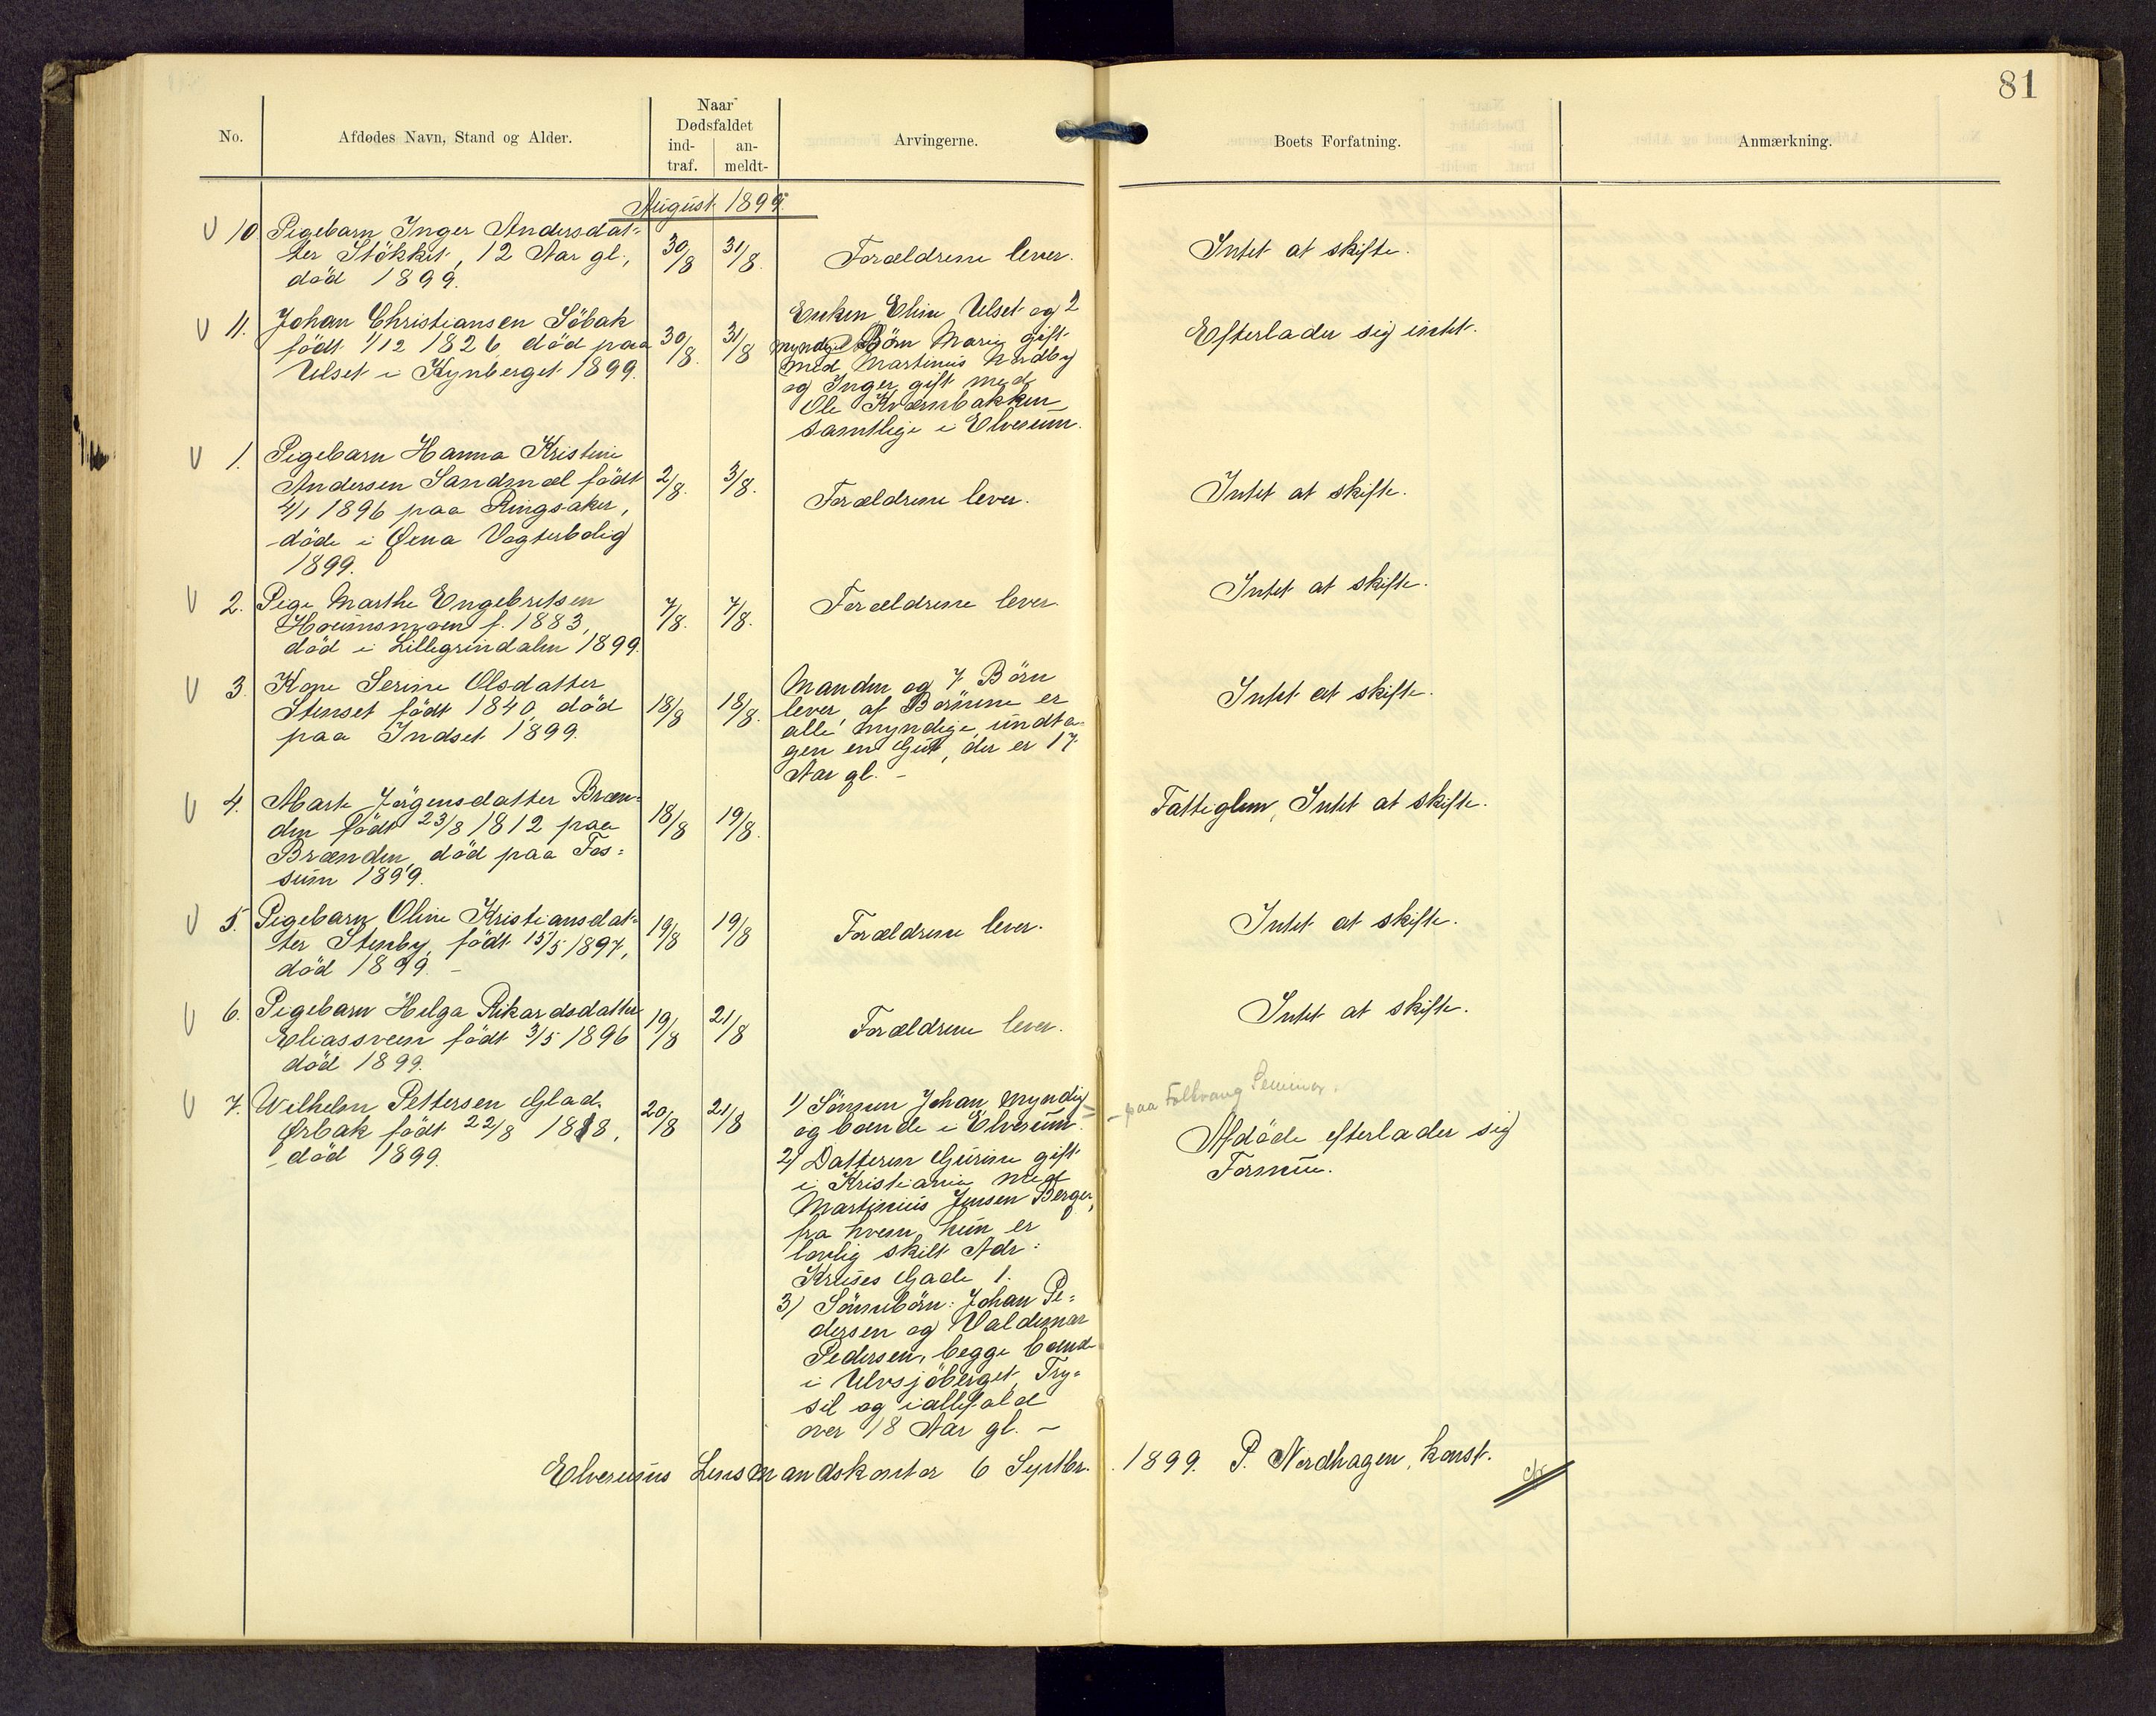 81
No.
Afdødes Navn, Stand og Alder.
Naar
Dødsfaldet
ind-
traf.
an-
meldt-
Arvingerne.
Boets Forfatning.
Anmærkning.
August 1899
10. Pigebarn Inger Andersdat-
ter Stökket, 12 Aar gl.,
död 1899.
30/8
31/8.
Forældrene lever.
Intet at skifte.
11. Johan Christiansen Söbak
födt 1/12 1826 död paa
Ulset i Kynberget 1899.
30/8.
31/8
Enken Eline Ulset og 2
myndige Börn Marie gift
med Martinus Nordby
og Inger gift med
Ole Kværnbakken
samtlige i Elverum.
Efterlader sig intet.
1. Pigebarn Hanna Kristine
Andersen Sandmæl födt
4/1 1896 paa Ringsaker,
döde i Øxna Vogterbolig
1899.
2/8.
3/8.
Forældrene lever.
Intet at skifte.
2. Pige Marthe Engebretsen
f. 1883,
död i Lillegrindalen 1899.
7/8.
7/8.
Forældrene lever.
Intet at skifte.
3. Kone Serine Olsdatter
Stenset födt 1840, död
paa Indset 1899.
18/8
18/8.
Manden og 7 Börn
lever, af Börnene er
alle myndige, undta-
gen en Gut, der er 17
Aar gl. -
Intet at skifte.
4. Marte Jörgensdatter Bræn-
den födt 23/8 1812 paa
Brænden, död paa Fos-
sum 1899.
18/8
19/8.
Fattiglem, Intet at skifte.
5. Pigebarn Oline Kristiansdat-
ter Stenby, födt 15/5 1897,
död 1899. -
19/8
19/8
Forældrene lever.
Intet at skifte.
6. Pigebarn Helga Rikardsdatter
Eliassveen födt 3/5 1896
död 1899.
19/8
21/8
Forældrene lever.
Intet at skifte.
7. Wilhelm Pettersen Glad.
Ørbak födt 22/8 1818,
död 1899.
20/8
21/8
1) Sönnen Johan, myndig
og boende i Elverum.
- paa Folkvang Seminar.
2) Datteren Gurine gift
i Kristiania med
Martinius Jensen Berger,
fra hvem hun er
lovlig skilt Adr:
Kruses Gade 1.
3) Sönnebörn: Johan Pe-
dersen og Valdemar
Pedersen, begge boende
i Ulvsjöberget, Try-
sil og iallefald
over 18 Aar gl. -
Afdöde efterlader sig
Formue.
Elverums Lensmandskontor 6 Septbr. 1899. P. Nordhagen, konst.